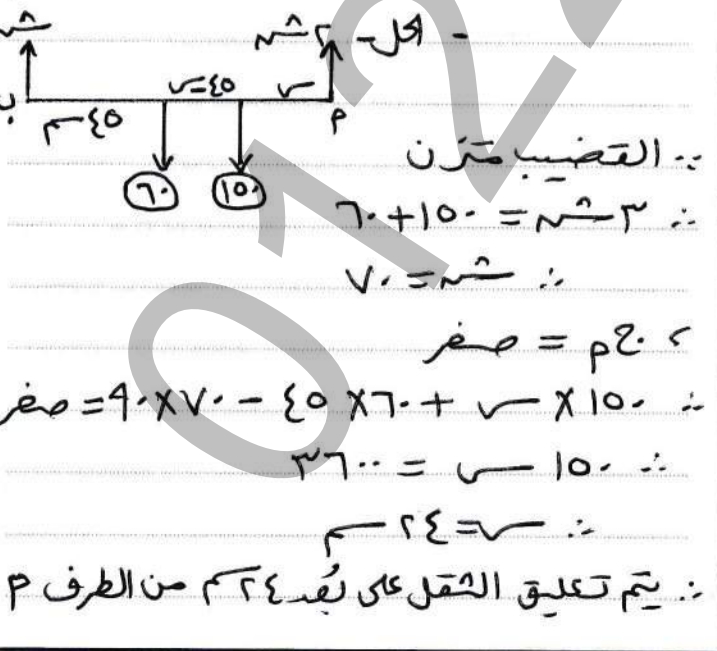 - الحل -
٢ شَ
شَ
٤٥-س
س
ب
٤٥ سم
م
٦٠
١٥٠
∵ القضيب متزن
∴ ٣ شَ = ١٥٠ + ٦٠
∴ شَ = ٧٠
، ج م = صفر
∴ ١٥٠ × س + ٦٠ × ٤٥ - ٧٠ × ٩٠ = صفر
∴ ١٥٠ س = ٣٦٠٠
∴ س = ٢٤ سم
∴ يتم تعليق الثقل على بُعد ٢٤ سم من الطرف م